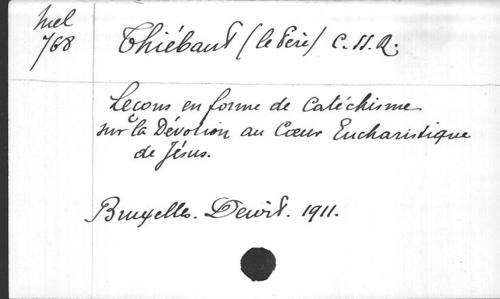 Mel
768
Thiébaut (le Père) C. SS. R.
Leçons en forme de Catéchisme
sur la Dévotion au Cœur Eucharistique
de Jésus.
Bruxelles. Dewit. 1911.